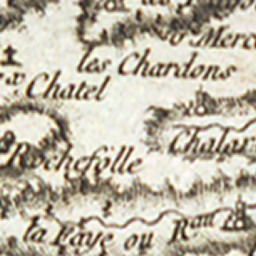 Merc
les Chardons
x Chatel
Chalar
Rochefolle
la Faye ou Rau